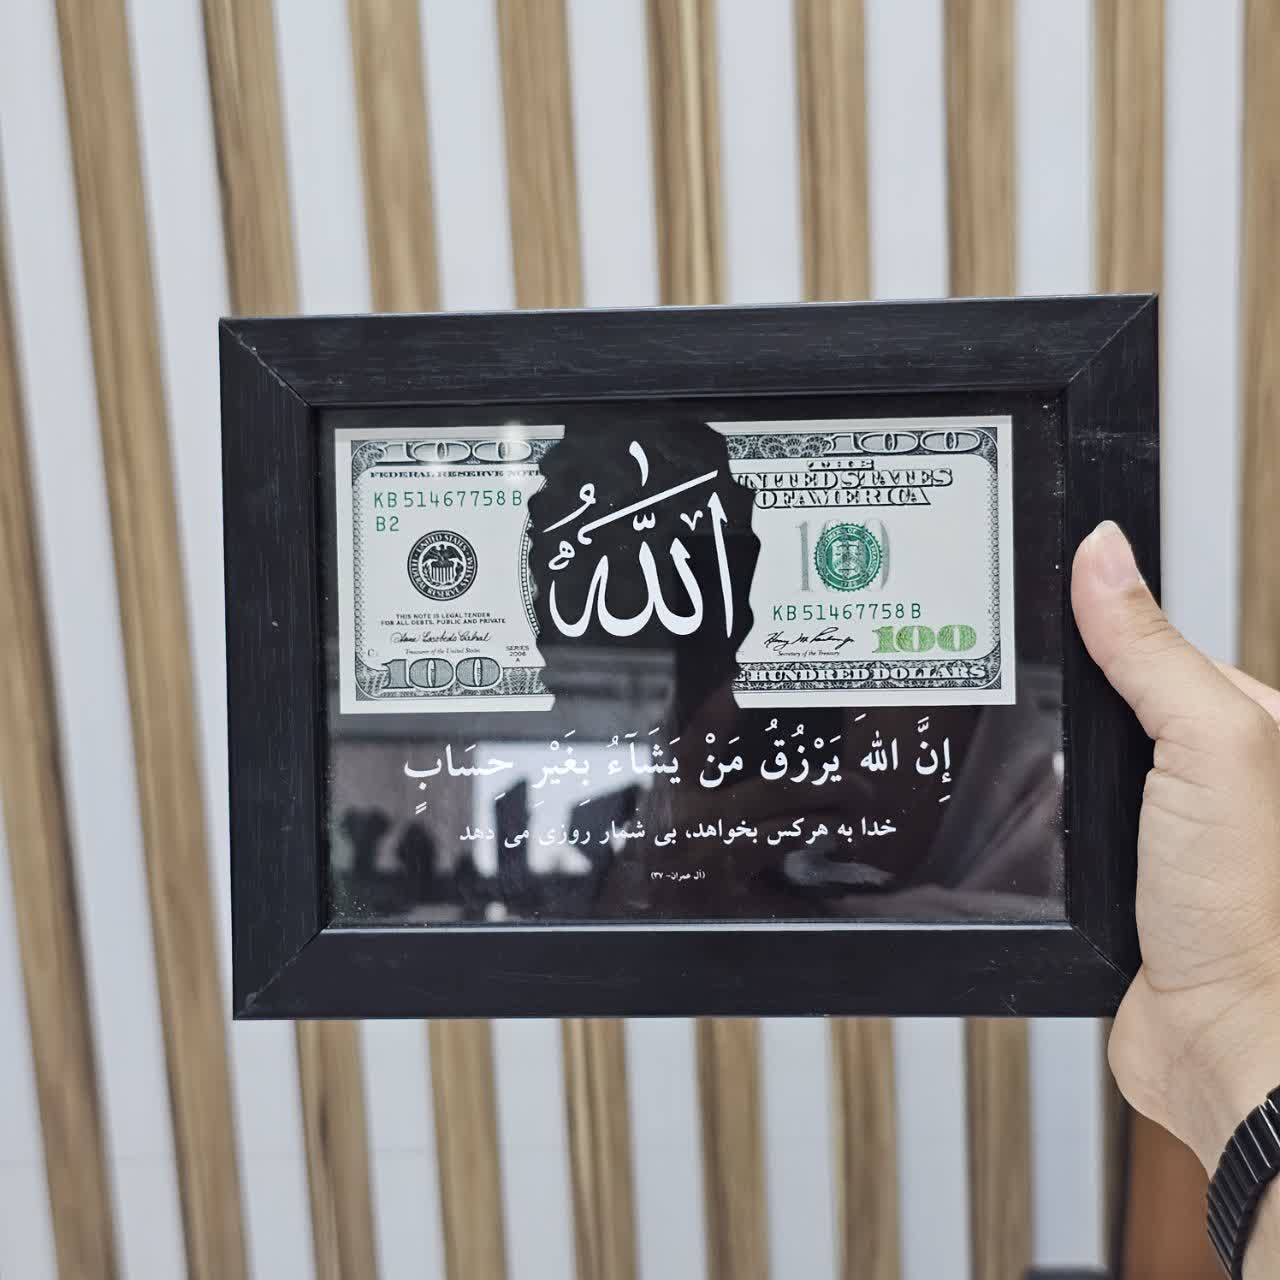 100 100
FEDERAL RESERVE NOTE
THE
UNITED STATES
OF AMERICA
KB 51467758 B
B2
THIS NOTE IS LEGAL TENDER
FOR ALL DEBTS, PUBLIC AND PRIVATE
Treasurer of the United States
SERIES
2006
A
100
KB 51467758 B
Secretary of the Treasury
100
HUNDRED DOLLARS
الله
إِنَّ اللهَ يَرْزُقُ مَنْ يَشَآءُ بِغَيْرِ حِسَابٍ
خدا به هرکس بخواهد، بی شمار روزی می دهد
(آل عمران- ۳۷)